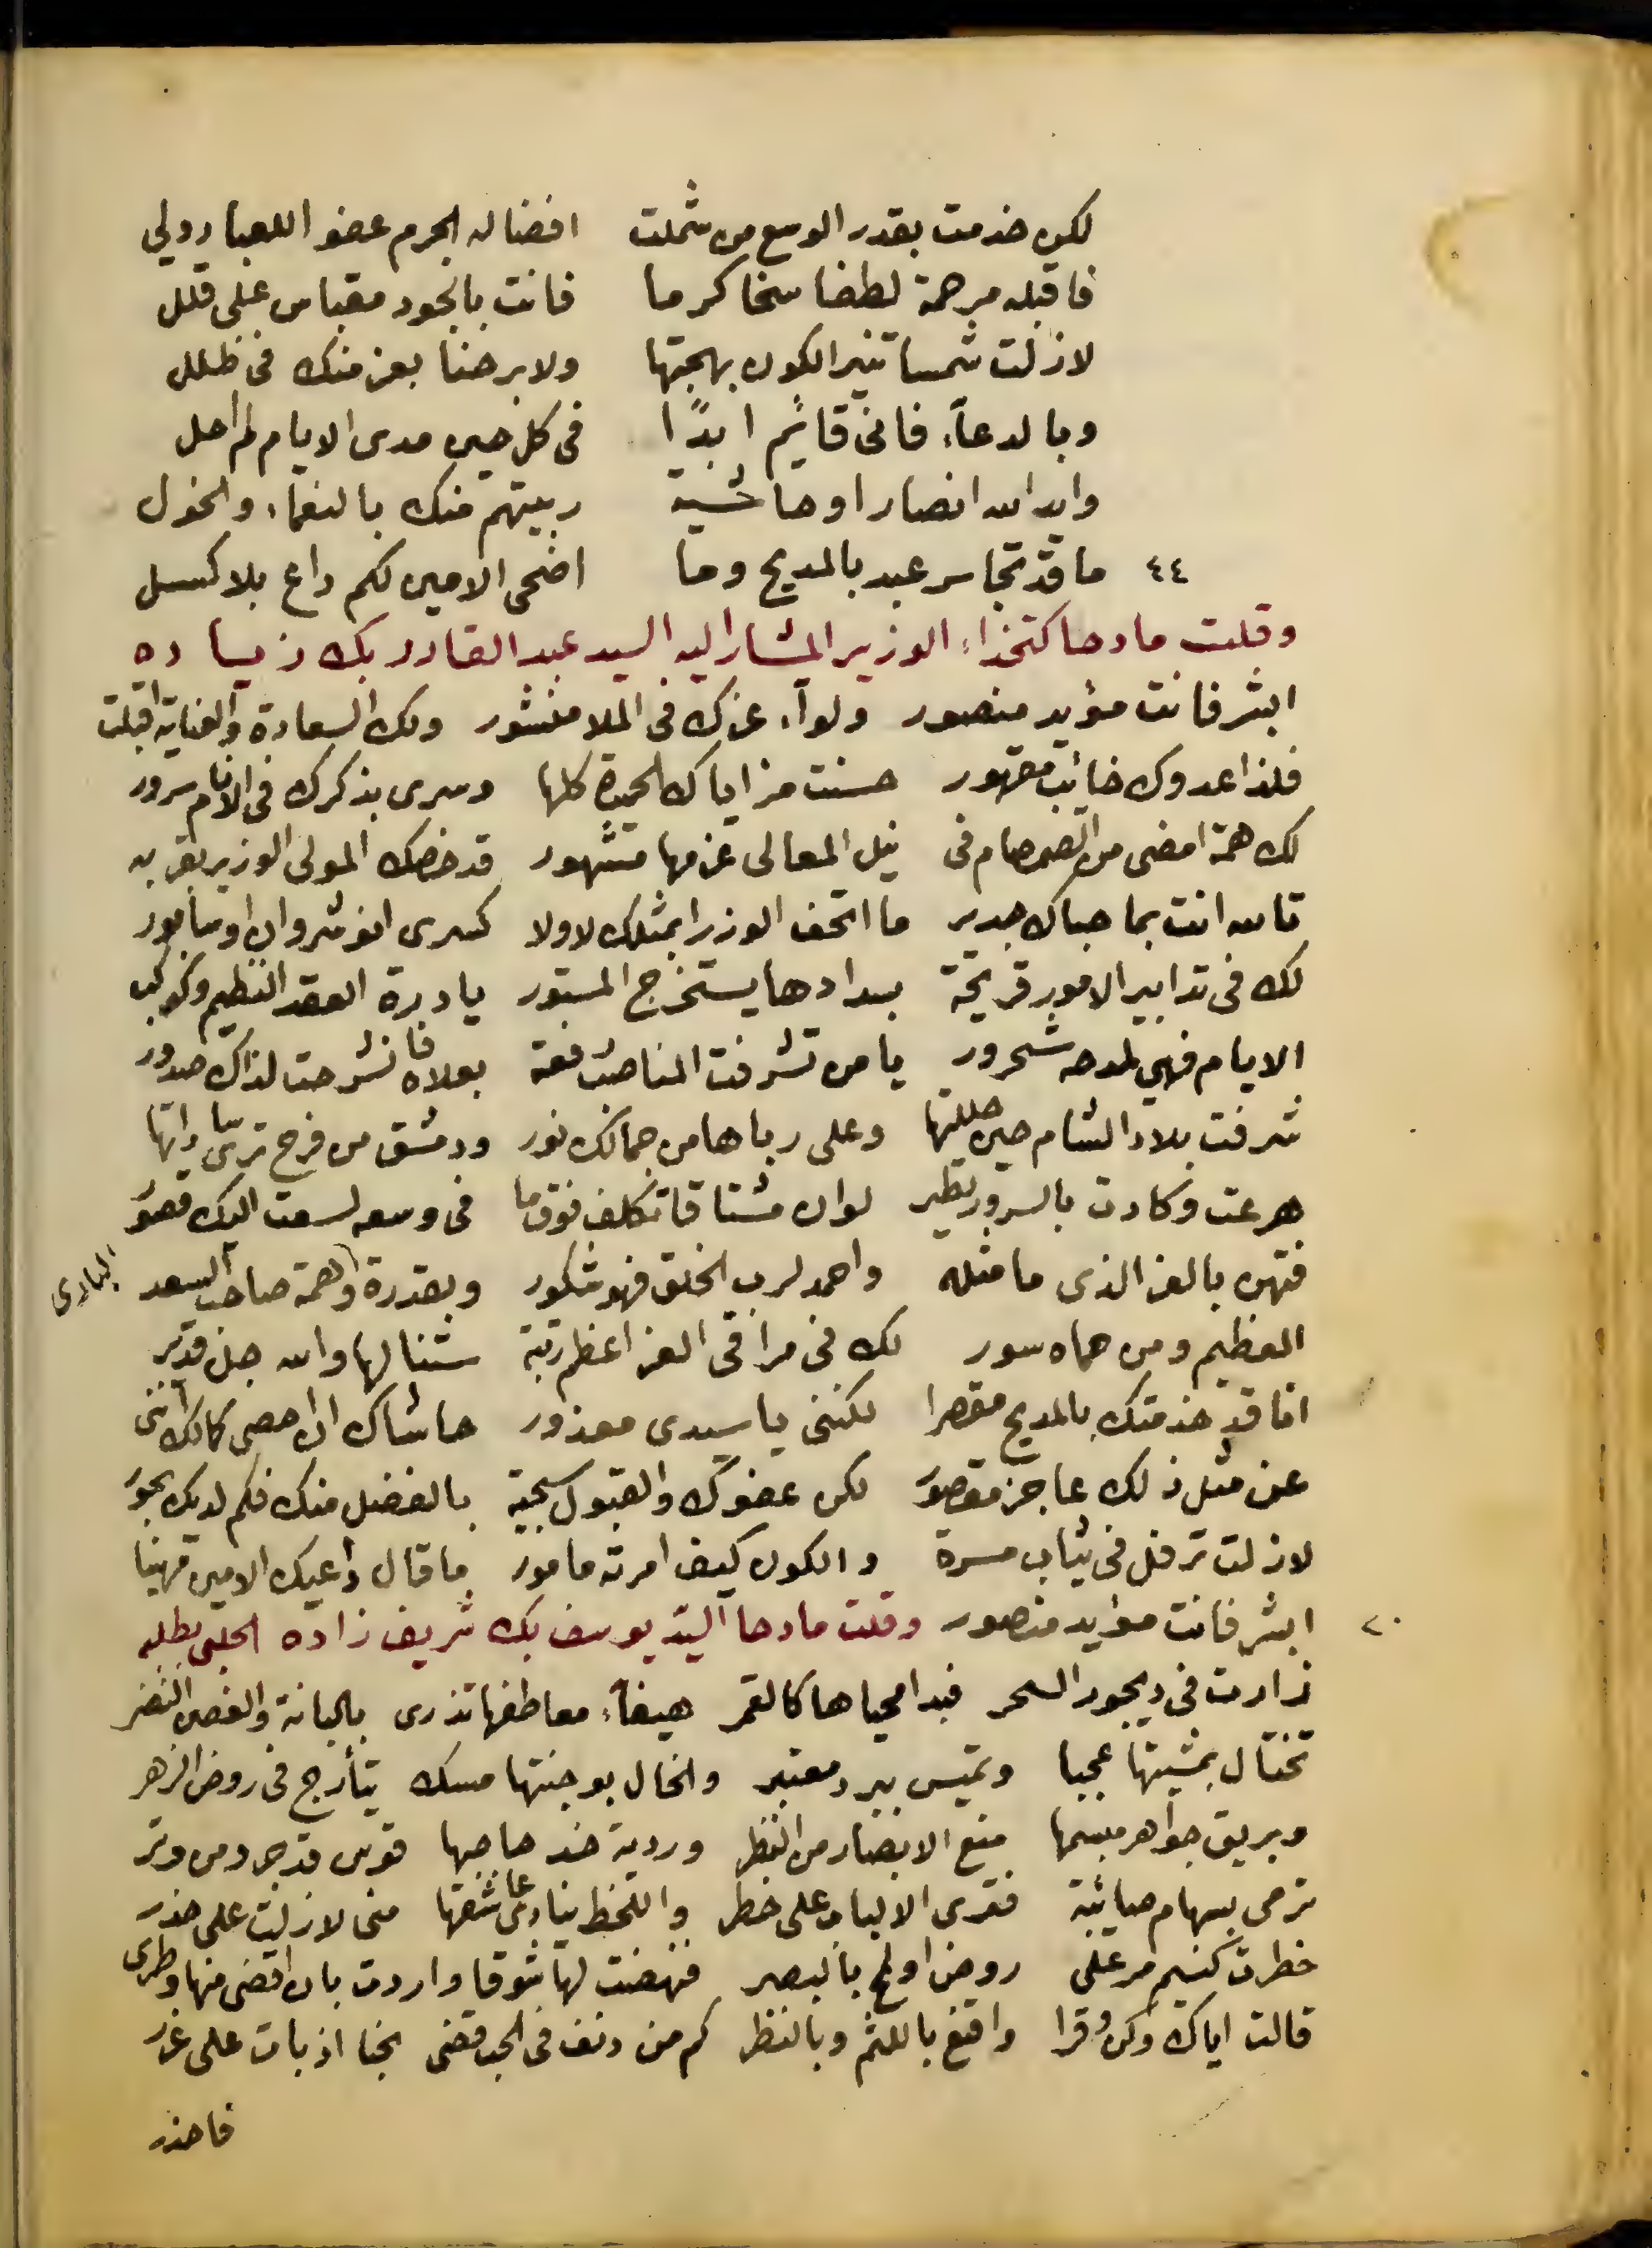 لكن خدمت بقدر الوسع من شملت افضاله الجرم عفو اللعباد ولي
فاقبله مرحمة لطفا سخا كرما فانت بالجود مقباس على قلل
لازلت شمسا تنير الكون بهجتها ولا برحنا بعز منك في ظلل
وبالدعاء فاني قائم ابدًا في كل حين مدى الايام لم احل
وايد الله انصارا وحاشية ربيتهم منك بالنعماء والخول
٤٤ ما قد تجاسر عبد بالمديح وما اضحى الامين لكم داع بلا كسل
وقلت مادحا كتخذاء الوزير المشار اليه السيد عبد القادر بك زيـاده
ابشر فانت مؤيد منصور ولواء عزك في الملا منشور ولك السعادة والعناية اقبلت
فلذا عدوك خائب مقهور حسنت مزاياك الحميدة كلها وسرى بذكرك في الانام سرور
لك همة امضى من الصمصام في نيل المعالي عزمها مشهور قد خصك المولى الوزير بقربه
تالله انت بما حباك جدير ما اتحف الوزرا بمثلك لا ولا كسرى انوشروان او سابور
لك في تدابير الامور قريحة بسدادها يستخرج المستور يا درة العقد النظيم وكوكب
الايام فهي لمدحه شحرور يا من تشرفت المناصب رفعة بعلاه فانشرحت لذاك صدور
شرفت بلاد الشام حين حللتها وعلى رباها من جمالك نور ودمشق من فرح ترى ساداتها
هرعت وكادت بالسرور تطير لو ان مشتاقا تكلف فوق ما في وسعه لسعت اليك قصور
فتهن بالعز الذي ما مثله واحمد لرب الخلق فهو شكور وبقدرة والهمة صاحب السعد البادي
العظيم ومن حماه سور لك في مراقي العز اعظم رتبة ستنالها والله جل قدير
انا قد خدمتك بالمديح مقصرا لكنني يا سيدي معذور حاشاك ان احصي كمالك انني
عن مثل ذلك عاجز مقصور لكن عفوك والقبول سجية بالفضل منك فكم لديك بحور
لازلت ترفل في ثياب مسرة والكون كيف امرته مامور ما قال داعيك الامين مهنيا
٢٠ ابشر فانت مؤيد منصور وقلت مادحا السيد يوسف بك شريف زاده الحلبي بطلبه
زارت في ديجور السحر فبدا محياها كالقمر هيفاء معاطفها تذري بالبانة والغصن النضر
تختال بمشيتها عجبا وتميس ببرد معتبر والخال بوجنتها مسك يتأرج في روض الزهر
وبريق جواهر مبسمها منع الابصار من النظر وردية خد حاجبها قوس قد جرد من وتر
ترمي بسهام صائبة فترى الالباب على خطر واللحظ ينادي عاشقها مني لازلت على حذر
خطرت كنسيم مر على روض او لمح بالبصر فنهضت لها شوقا واردت بان اقضي منها وطري
قالت اياك وكن وقرا واقنع باللثم وبالنظر كم من دنف في الحب قضى نحبا اذ بات على غرر
فاحذر